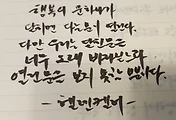 행복의 문 하나가
닫히면 다른 문이 열린다.
다만 우리는 닫힌 문만
너무 오래 바라보느라
열린 문은 보지 못하는
- 헬렌켈러 -